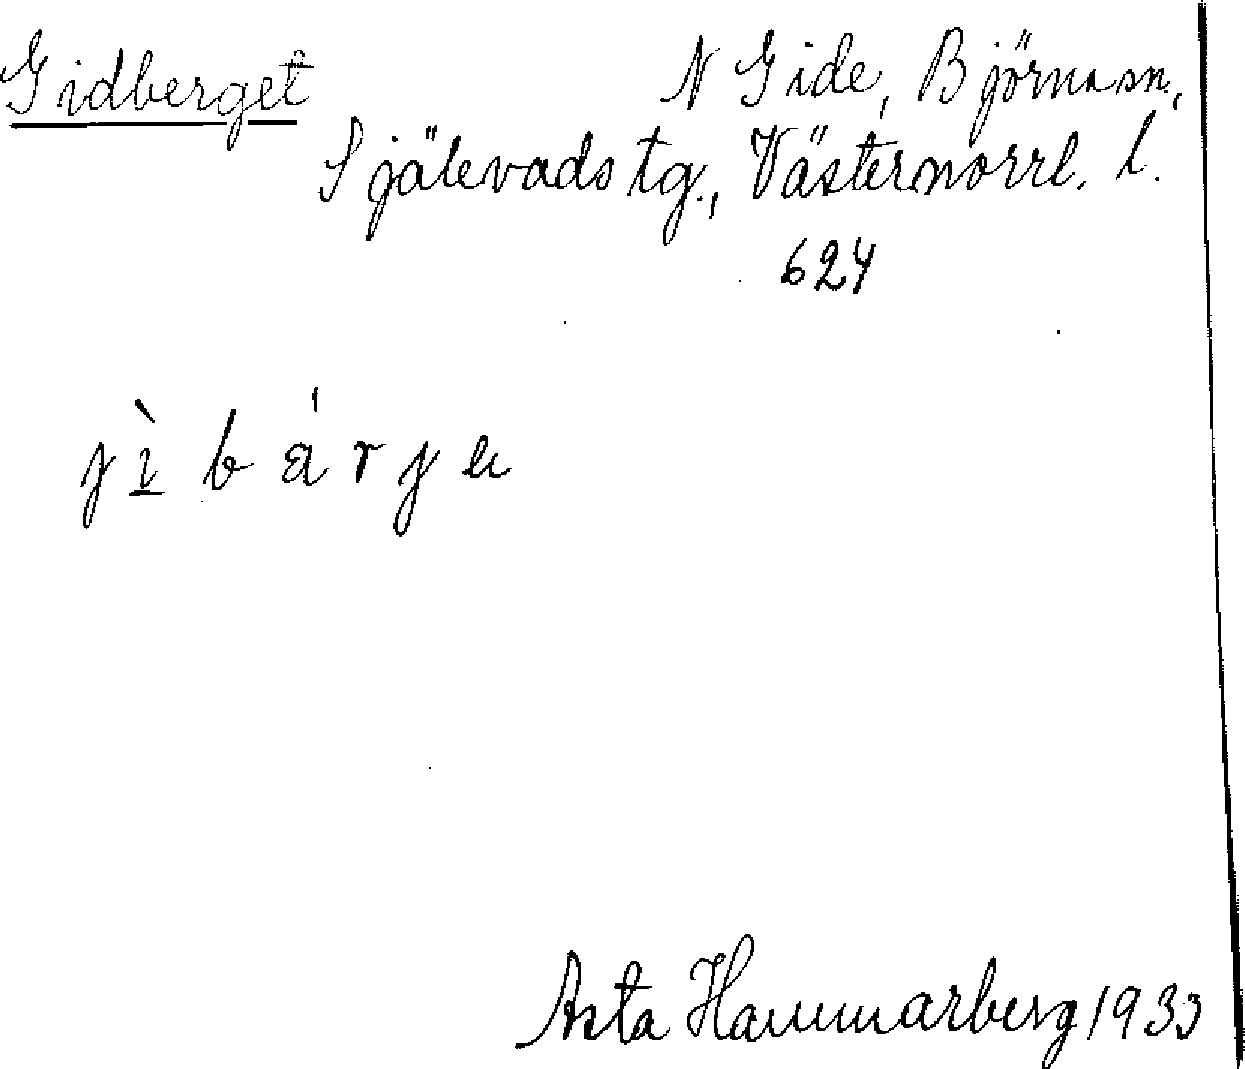 Gidberget N Gide, Björna sn.,
Själevads tg., Västernorrl. l.
624
Asta Hammarberg 1933